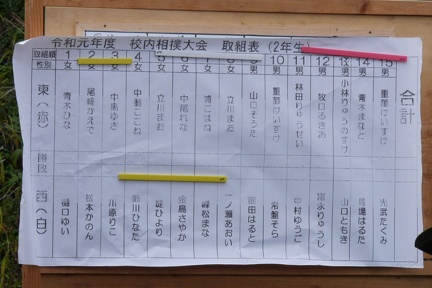 令和元年度 校内相撲大会 取組表(2年生)
取組順 1 2 3 4 5 6 7 8 9 10 11 12 13 14 15 合計
性別 女 女 女 女 女 女 女 女 男 男 男 男 男 男 男
東(赤) 青木ひな 尾崎かえで 中島ゆさ 立川まお 中尾れな 立川まお 山口そうた 重藤けいすけ 林田りゅうせい 牧口るきあ 小林りゅうのすけ 青木まなと 重藤けいすけ
勝敗
西(白) 樋口ゆい 松本かのん 川原りこ 前川ひなた 堤ひより 金島さやか 峰松まな 一ノ瀬あおい 前田はると 常盤そら 中村ゆうご 富永りゅうじ 山口ともき 馬場はるた 光武たくみ